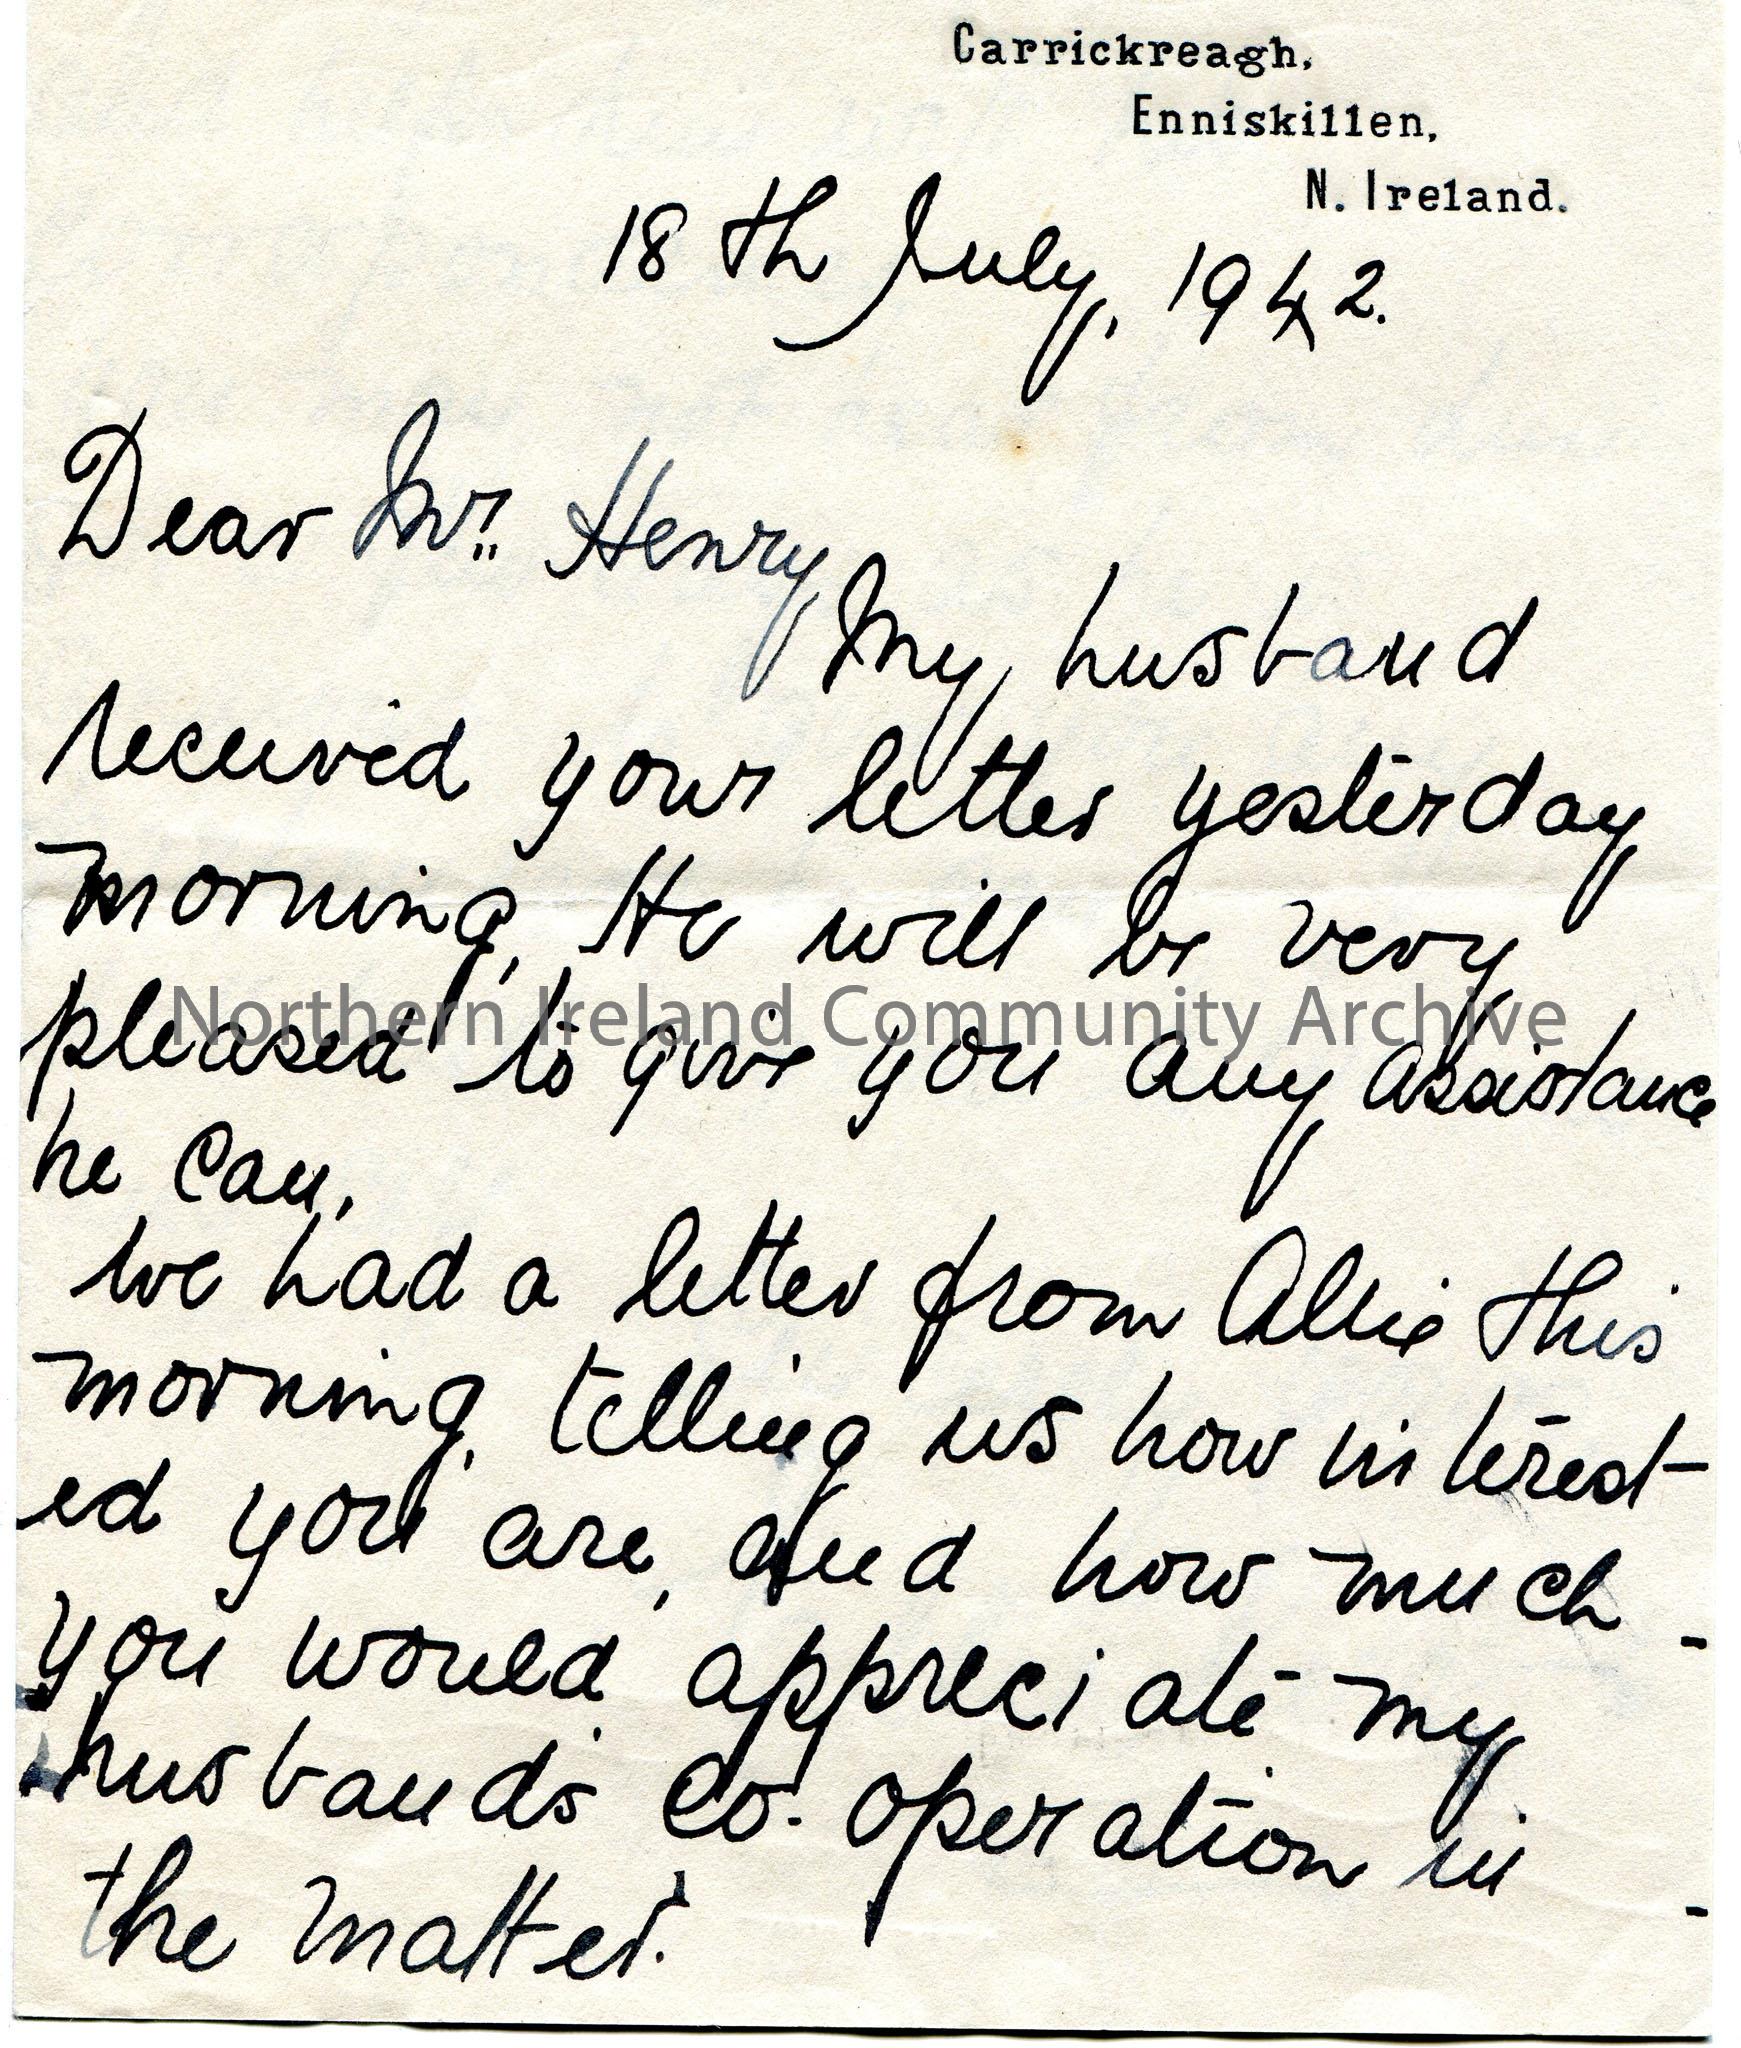 Carrickreagh,
Enniskillen,
N. Ireland.
18th July, 1942.
Dear Mr. Henry,
My husband
received your letter yesterday
morning, He will be very
pleased to give you any assistance
he can,
We had a letter from Allie this
morning, telling us how interest-
ed you are, and how much -
you would appreciate my
husband's co-operation in -
the matter.
Northern Ireland Community Archive